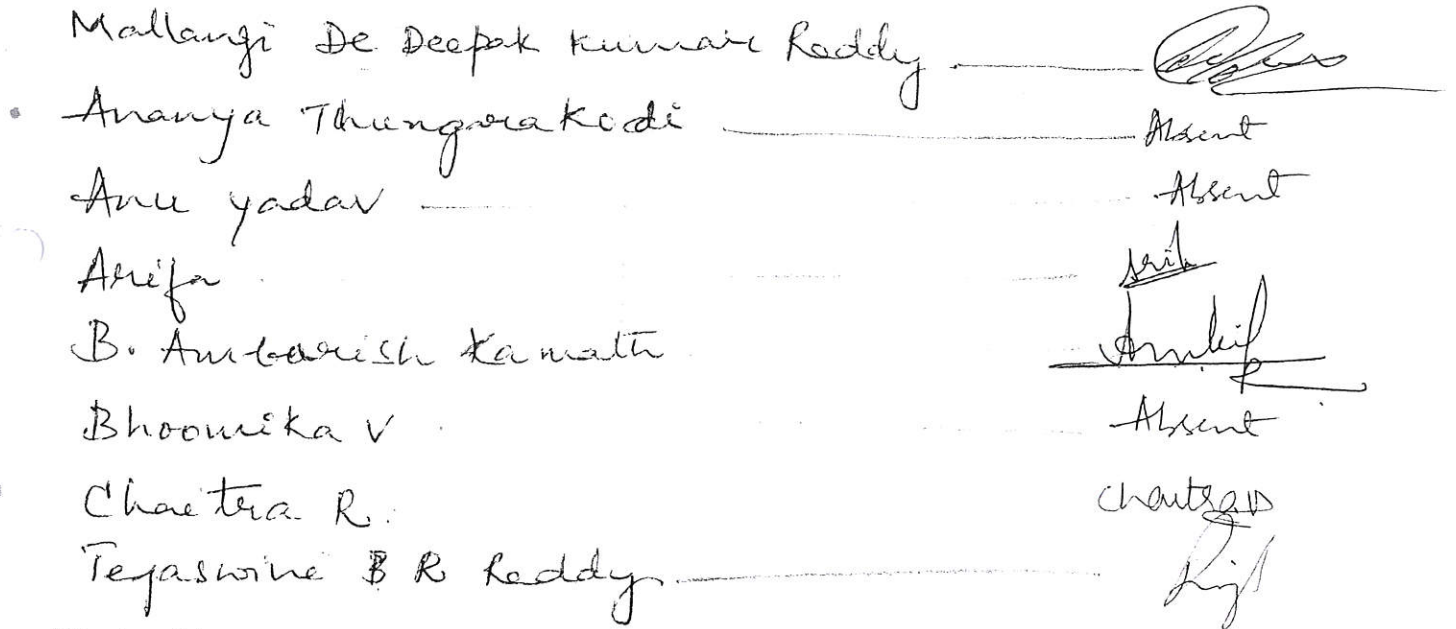 Mallangi De Deepak Kumar Reddy
Ananya Thungarakodi Absent
Anu yadav Absent
Arifa
B. Ambarish Kamath
Bhoomika V Absent
Chaitra R. Chaitra
Tejaswine B R Reddy